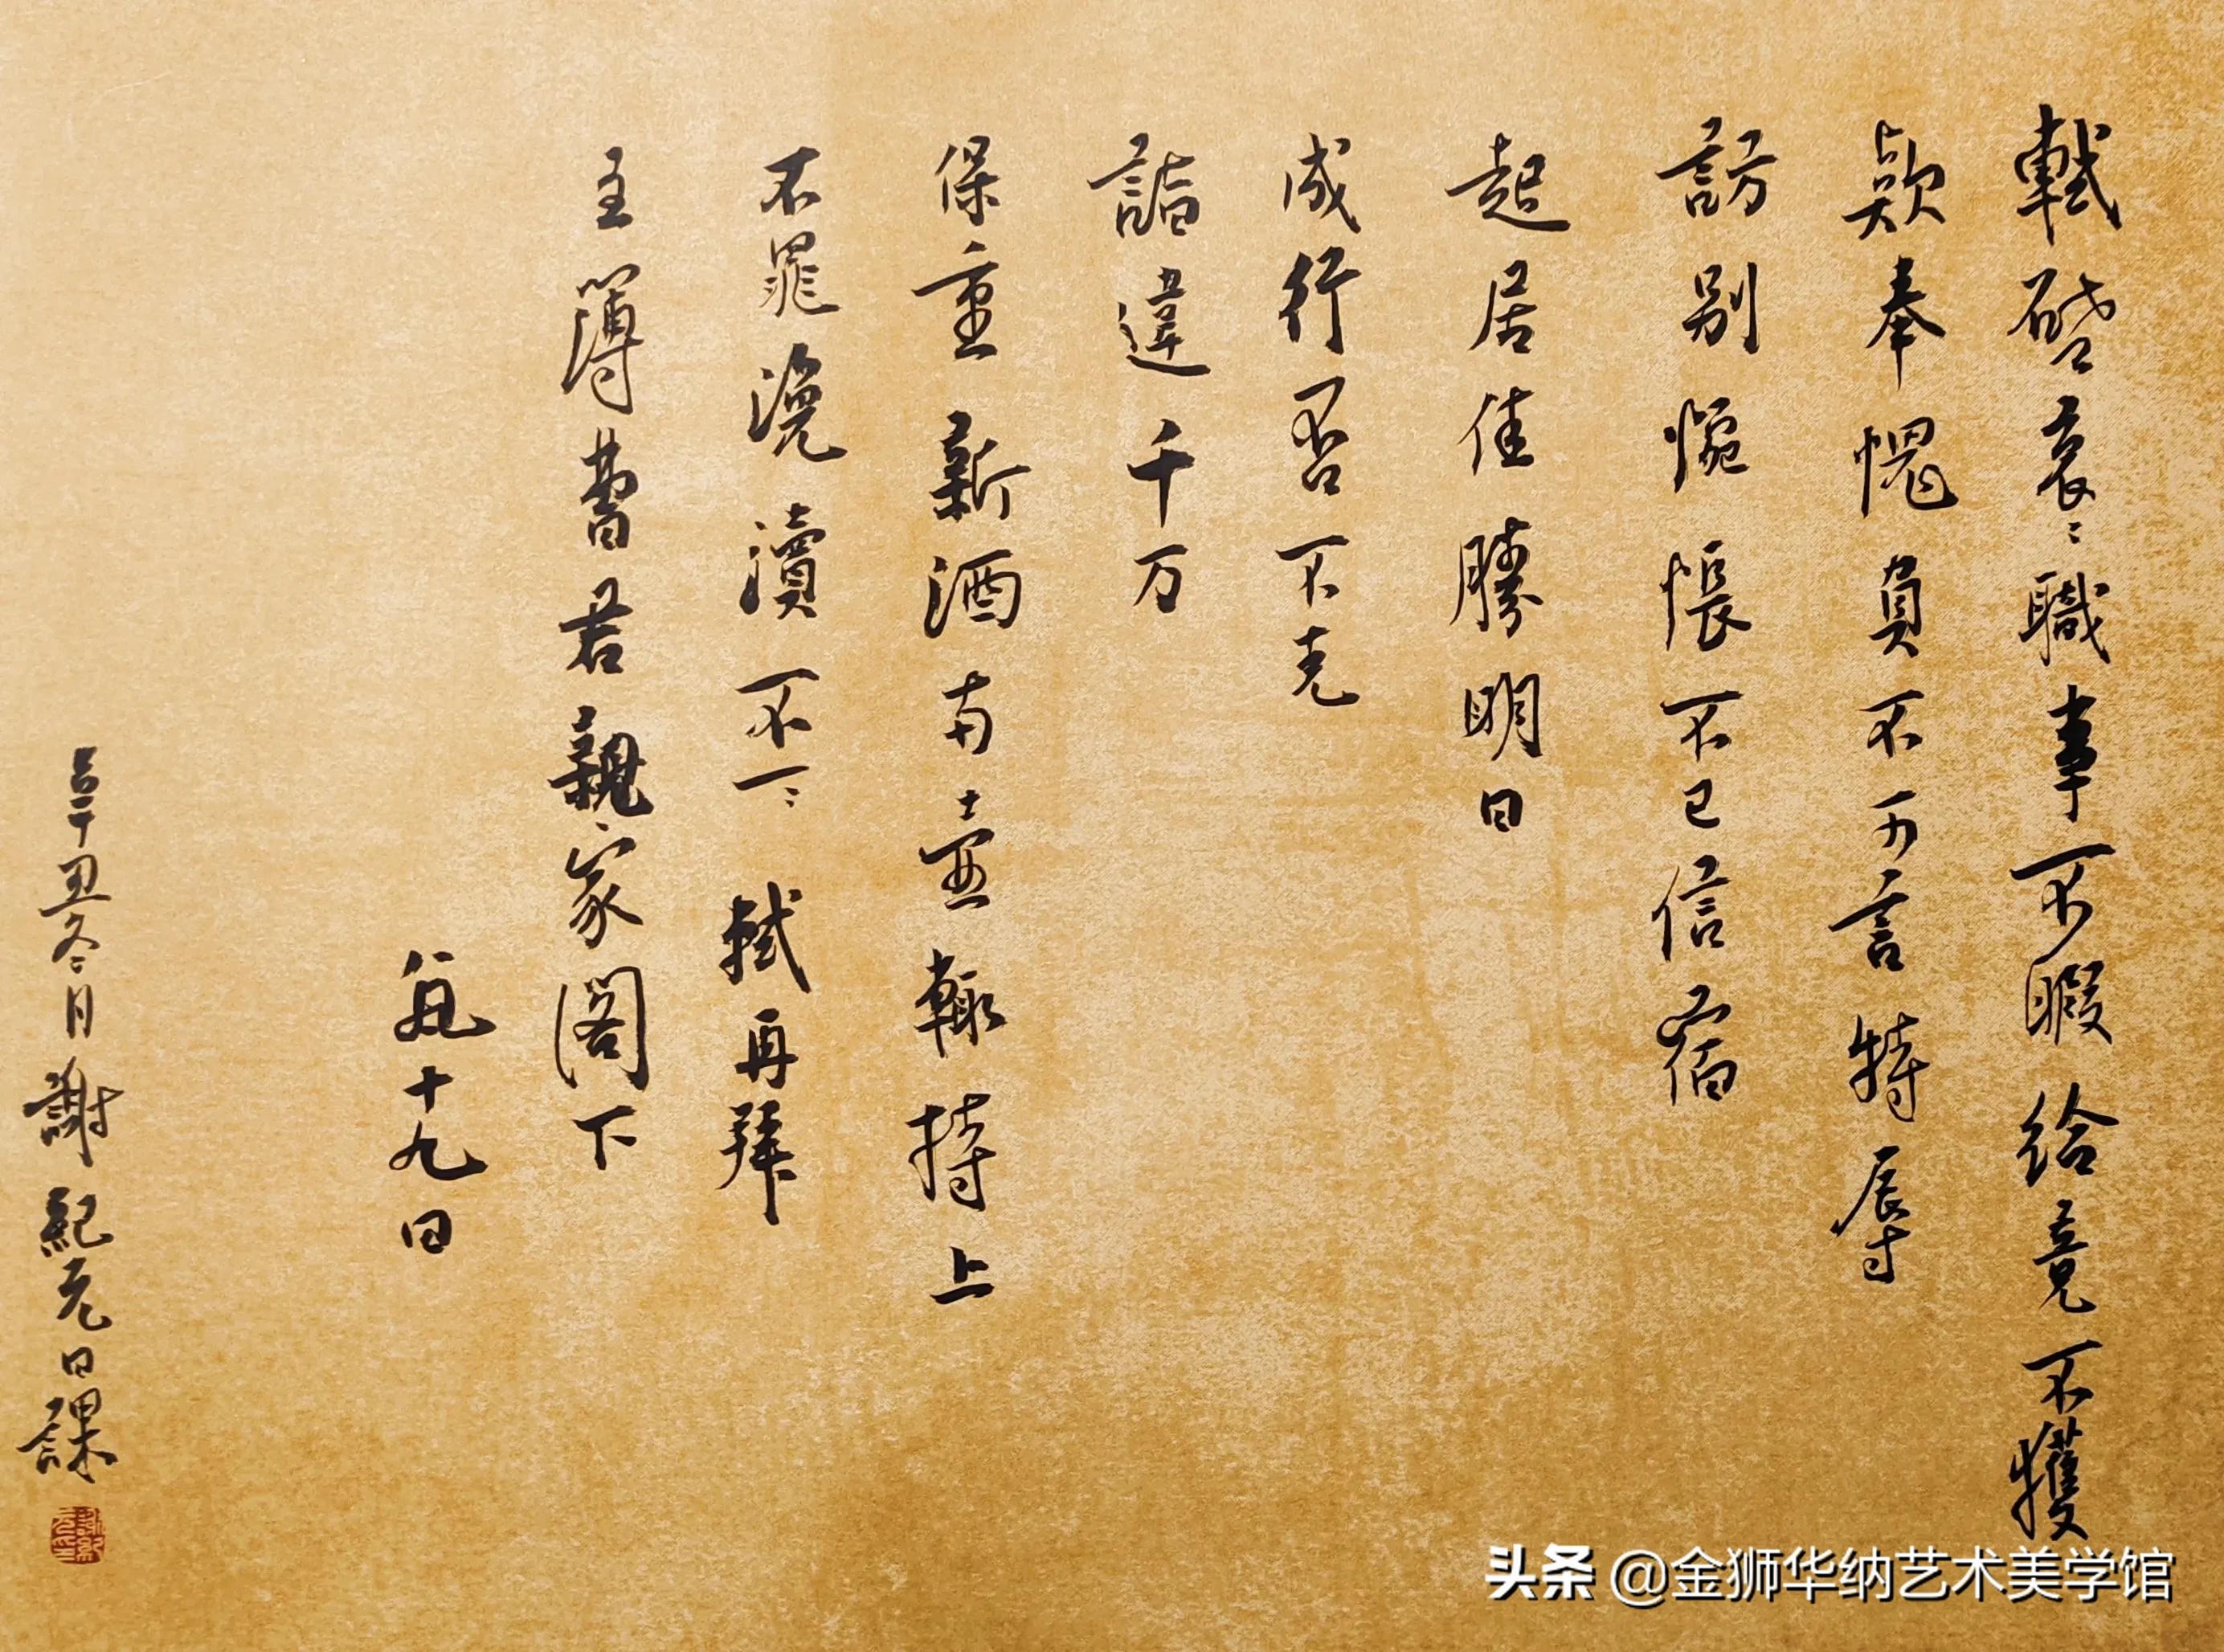 軾啓袞〻職事不暇給竟不獲
款奉愧負不可言特辱
訪別惋悵不已信宿
起居佳勝明日
成行否不克
詣違千万
保重新酒兩壺輒持上
不罪浼瀆不一〻軾再拜
主簿曹君親家閣下
八月十九日
辛丑冬月謝紀元日課
头条 @金狮华纳艺术美学馆